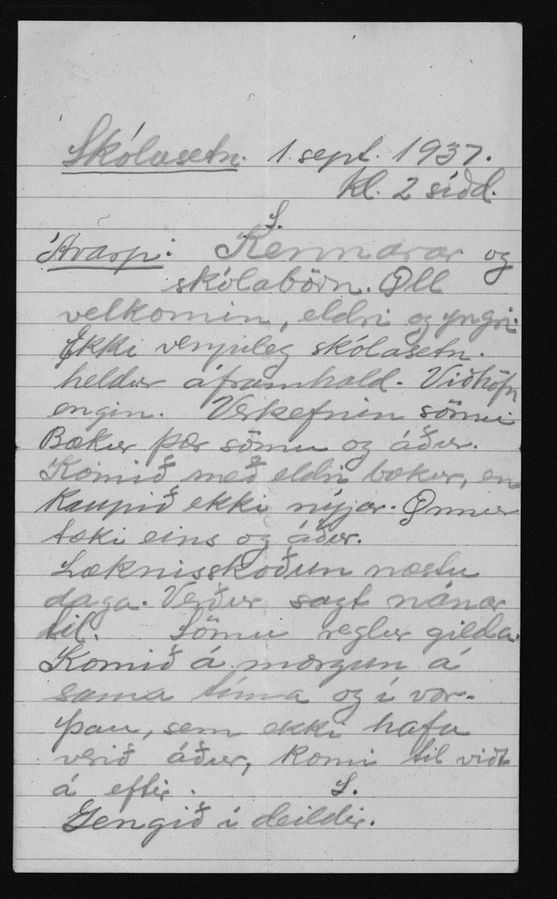 Skólasetn. 1. sept. 1937.
kl. 2 síðd.
S.
Ávarp: Kennarar og
skólabörn. Öll
velkomin, eldri og yngri.
Ekki venjuleg skólasetn.
heldur áframhald. Viðhöfn
engin. Verkefnin sömu
Bækur þær sömu og áður.
Komið með eldri bækur, en
kaupið ekki nýjar. Önnur
tæki eins og áður.
Læknisskoðun næstu
daga. Verður sagt nánar
til. Sömu reglur gilda.
Komið á morgun á
sama tíma og í vor.
Þau, sem ekki hafa
verið áður, komi til viðt
á eftir. S.
Gengið í deildir.